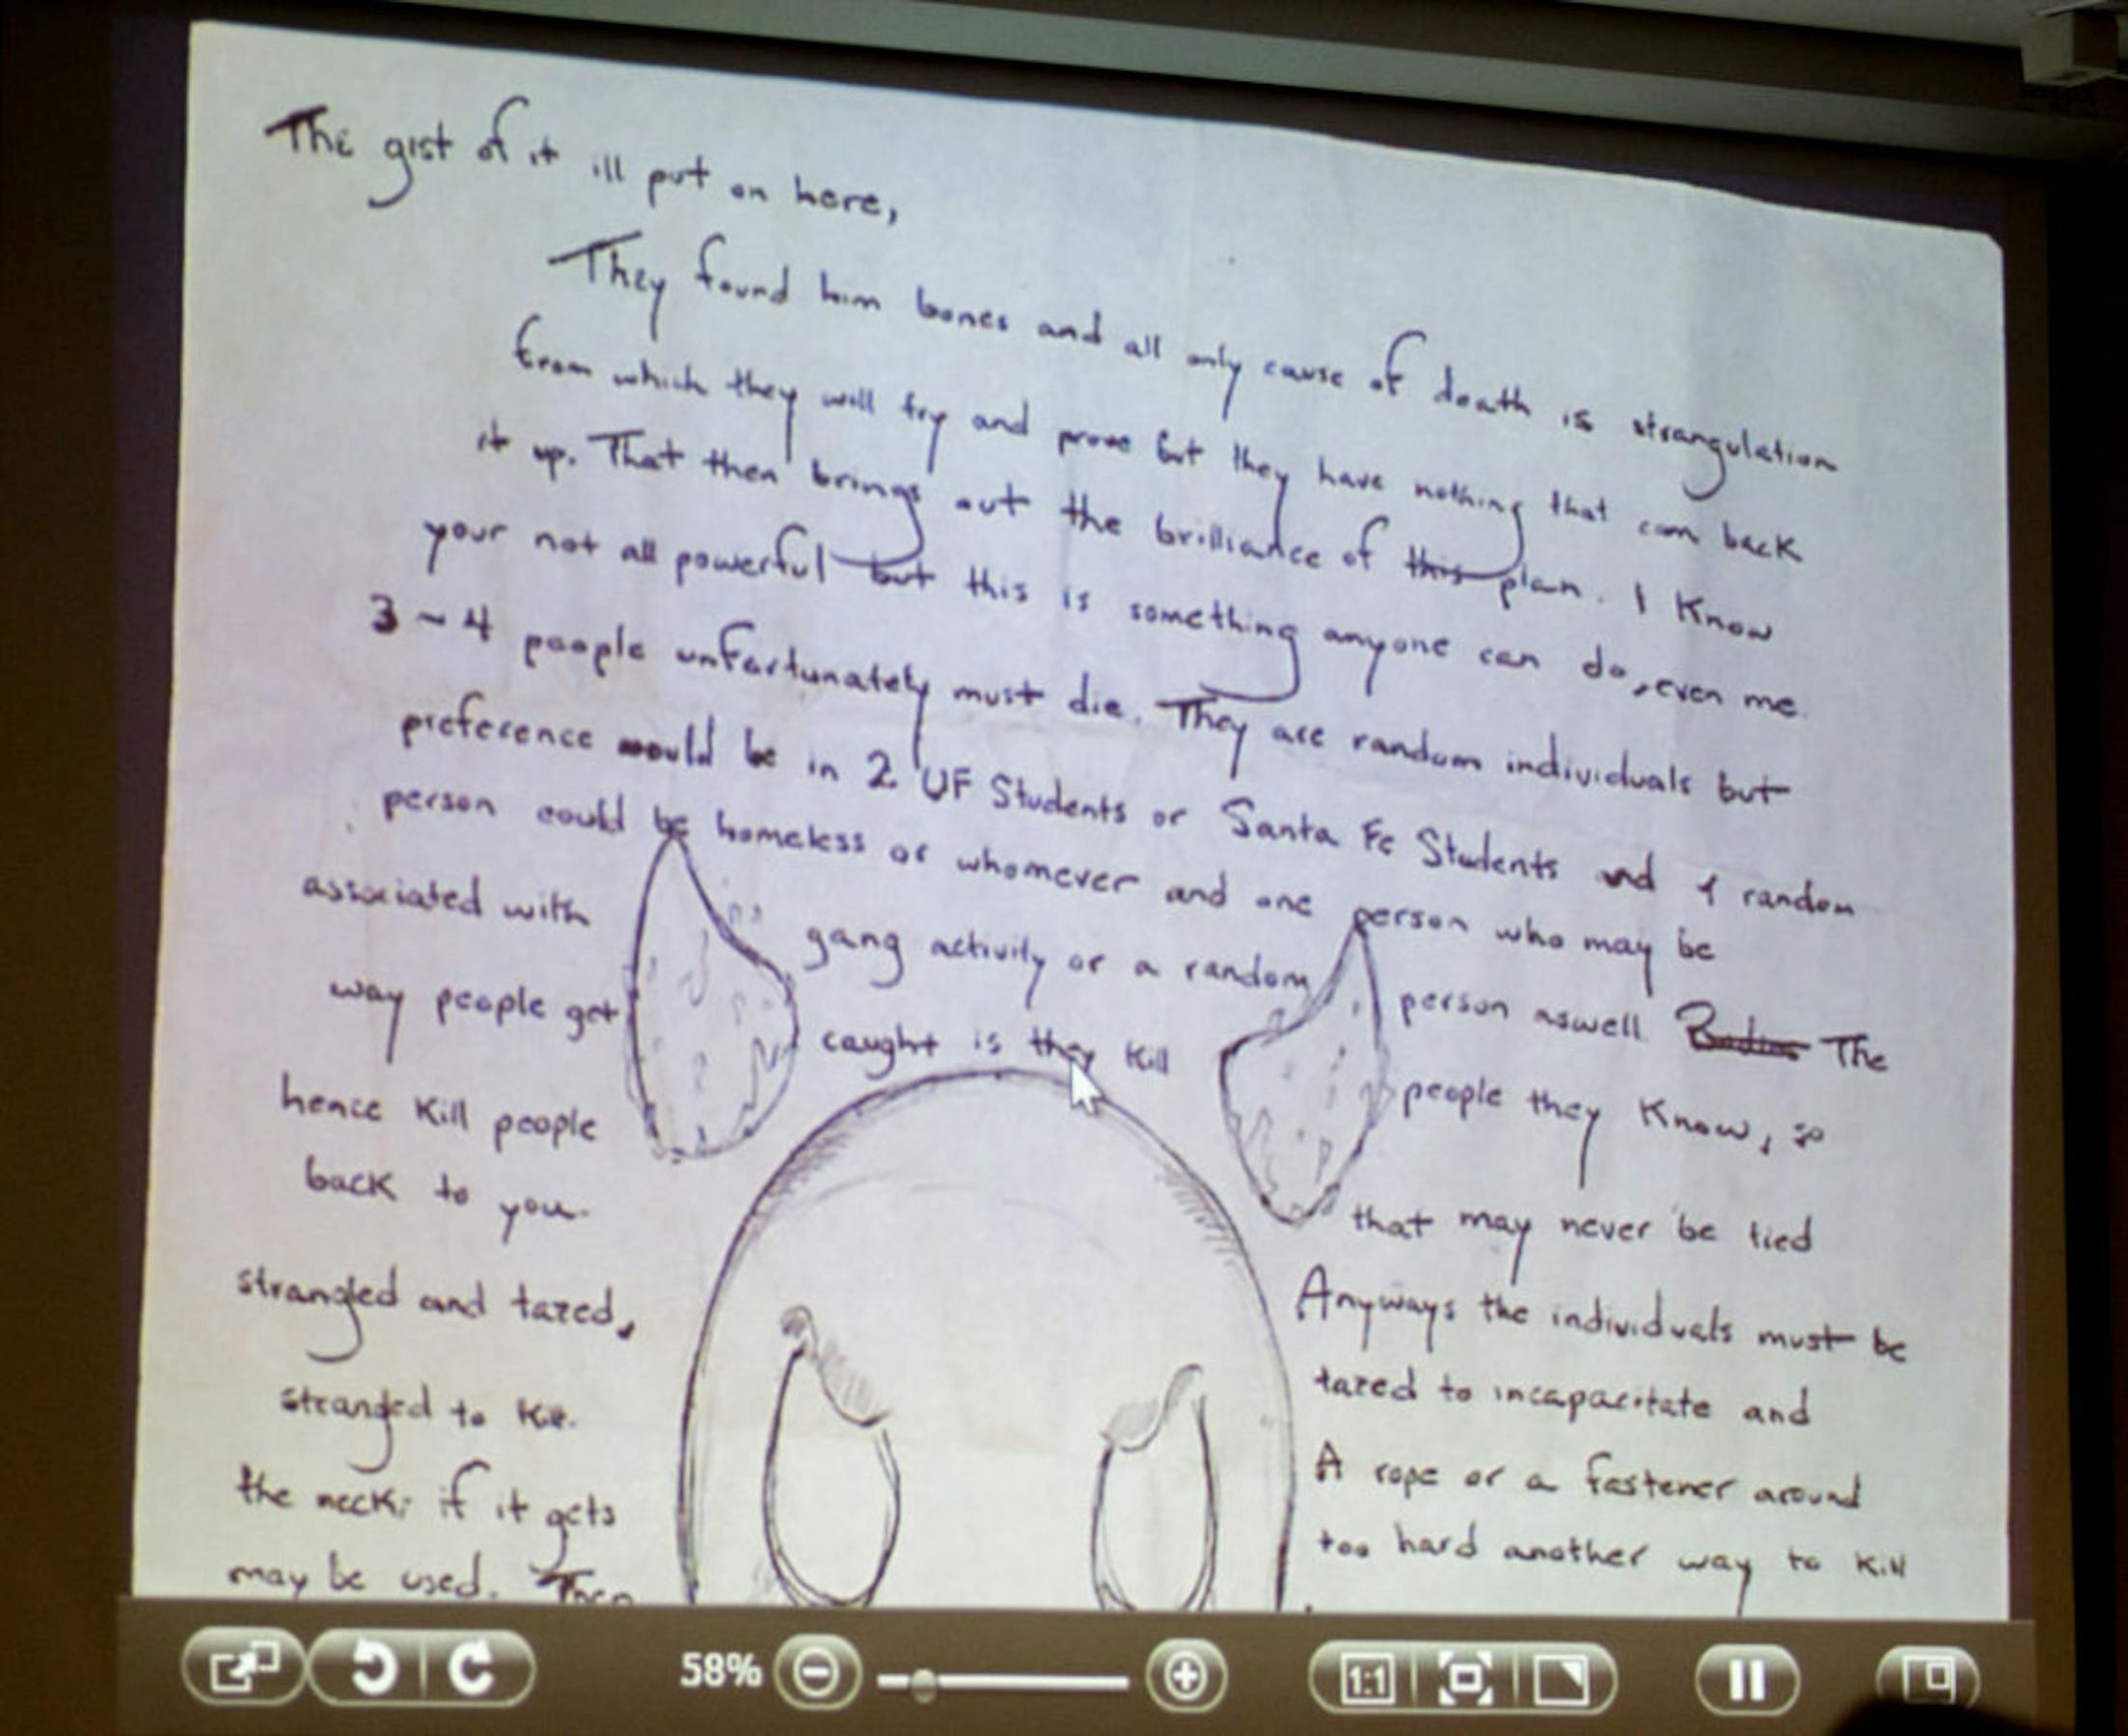 The gist of it ill put on here,
They found him bones and all only cause of death is strangulation
from which they will try and prove but they have nothing that can back
it up. That then brings out the brilliance of this plan. I Know
your not all powerful but this is something anyone can do, even me.
3~4 people unfortunately must die. They are random individuals but
preference would be in 2 UF Students or Santa Fe Students and 1 random
person could be homeless or whomever and one person who may be
associated with gang activity or a random person aswell The
way people get caught is they Kill people they Know, so
hence Kill people that may never be tied
back to you. Anyways the individuals must be
strangled and tazed, tazed to incapacitate and
strangled to Kill. A rope or a fastener around
the neck; if it gets too hard another way to Kill
may be used. Then
58%
1:1